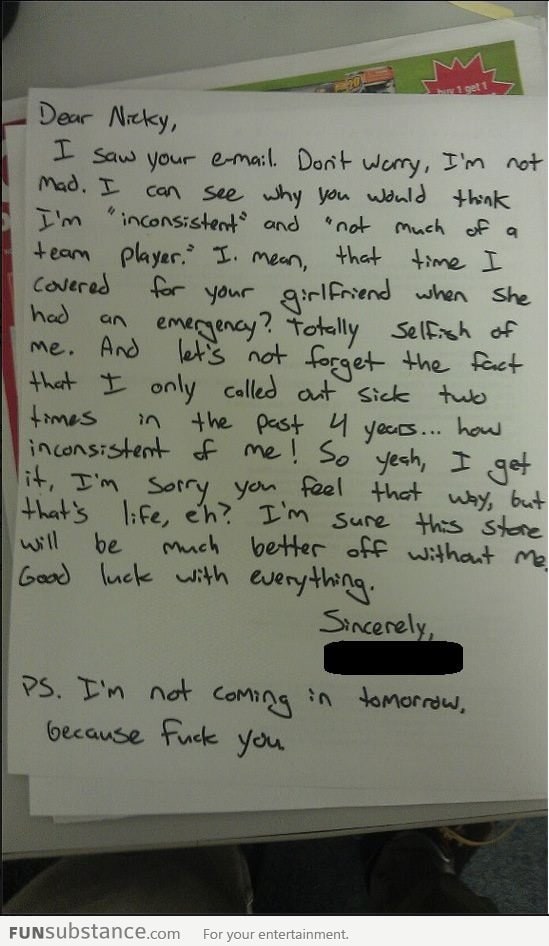 buy 1 get 1
Dear Nicky,
I saw your e-mail. Don't worry, I'm not
mad. I can see why you would think
I'm "inconsistent" and "not much of a
team player." I. mean, that time I
covered for your girlfriend when she
had an emergency? Totally selfish of
me. And let's not forget the fact
that I only called out sick two
times in the past 4 years... how
inconsistent of me! So yeah, I get
it, I'm sorry you feel that way, but
that's life, eh? I'm sure this store
will be much better off without me.
Good luck with everything.
Sincerely,
PS. I'm not coming in tomorrow,
because fuck you.
FUNsubstance.com For your entertainment.